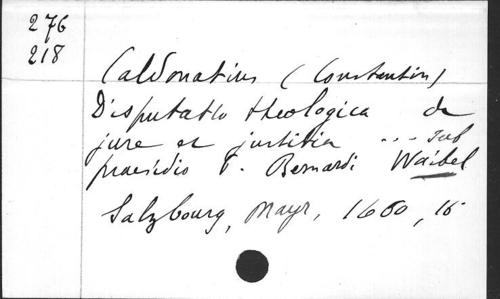 276
218
Caldonatius (Constantin)
Disputatio theologica de
jure et justitia ... sub
praesidio P. Bernardi Waibel
Salzbourg, Mayr, 1660, 16